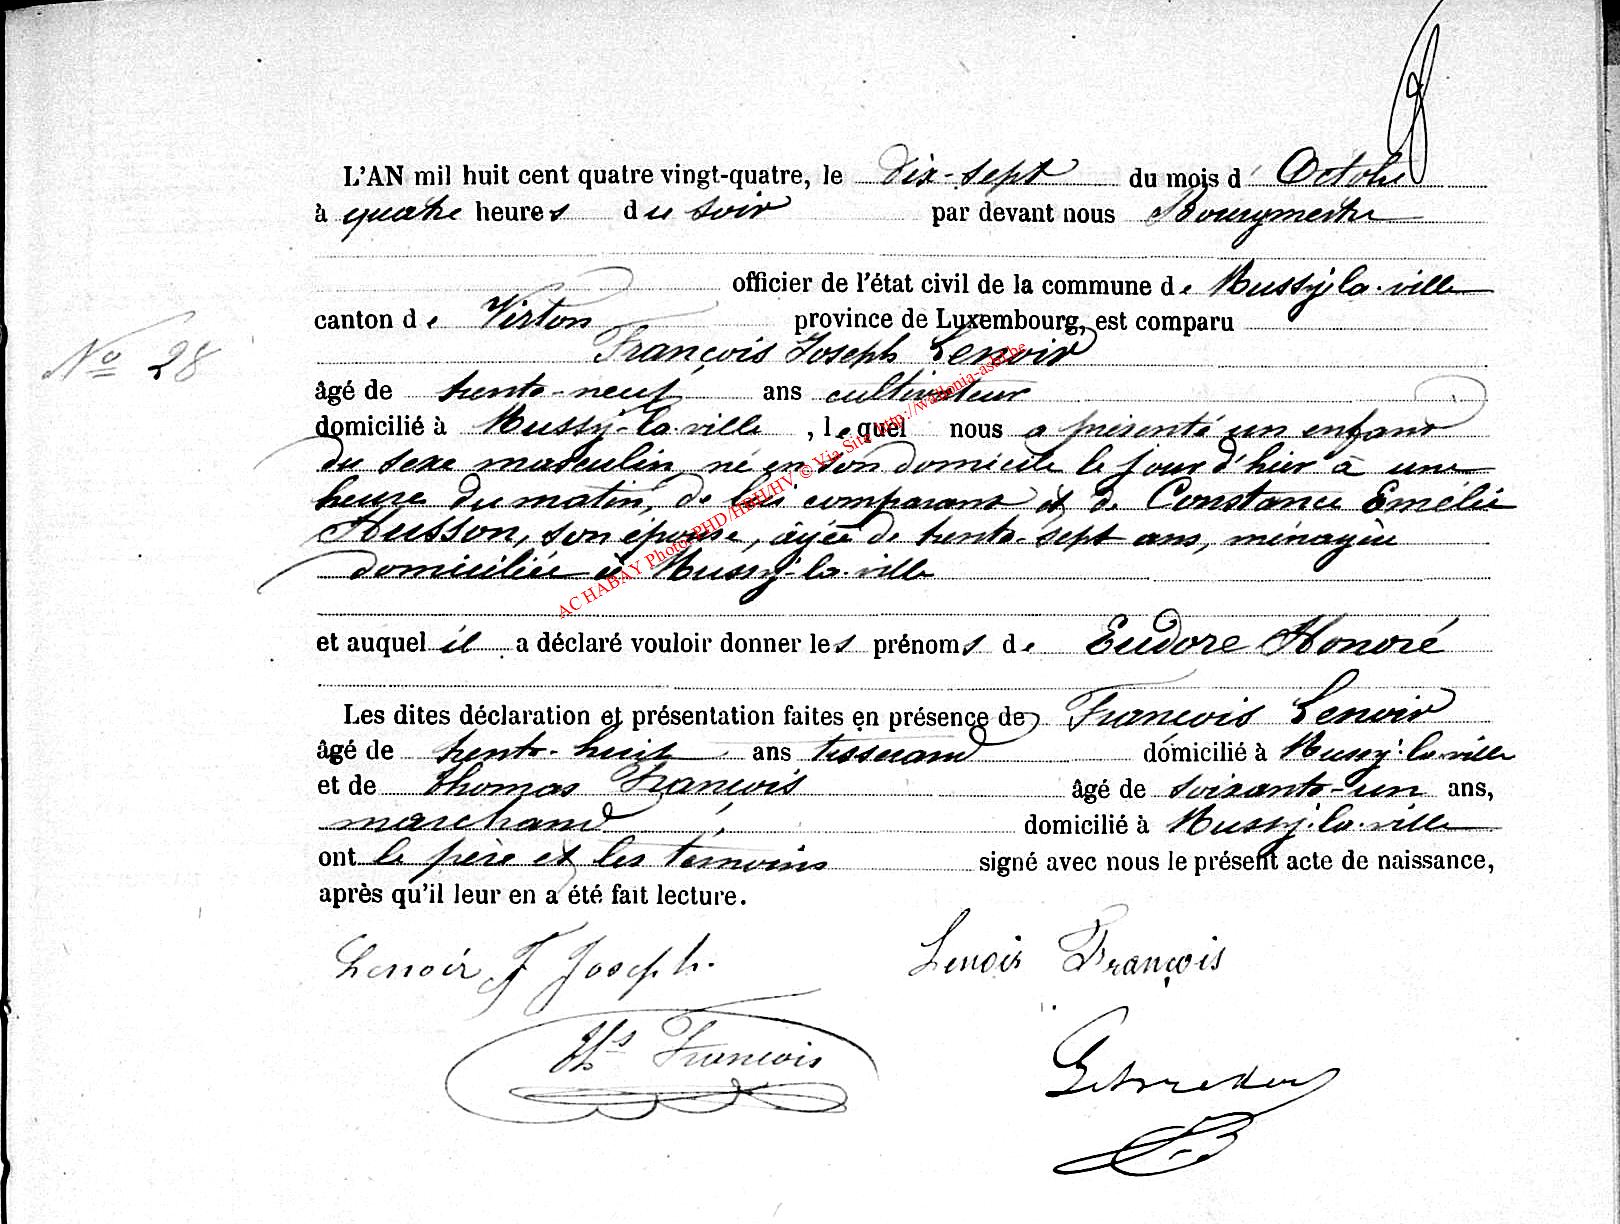 L'AN mil huit cent quatre vingt-quatre, le dix-sept du mois d' Octobre
à quatre heures du soir par devant nous Bourgmestre
officier de l'état civil de la commune de Mussy-la-ville
canton de Virton province de Luxembourg, est comparu
François Joseph Lenoir
N° 28
âgé de trente-neuf ans cultivateur
domicilié à Mussy-la-ville, lequel nous a présenté un enfant
du sexe masculin, né en son domicile le jour d'hier à une
heure du matin, de lui comparant et de Constance Emélie
Husson, son épouse, âgée de trente-sept ans, ménagère
domiciliée à Mussy-la-ville
et auquel il a déclaré vouloir donner les prénoms de Eudore Honoré
Les dites déclaration et présentation faites en présence de François Lenoir
âgé de trente-huit ans tisserand domicilié à Mussy-la-ville
et de Thomas François âgé de soixante-un ans,
marchand domicilié à Mussy-la-ville
ont le père et les témoins signé avec nous le présent acte de naissance,
après qu'il leur en a été fait lecture.
Lenoir F Joseph. Lenoir François
Ths François
AC HABAY Photos PHD/HBH/HV © Via Site http://wallonia-asbl.be